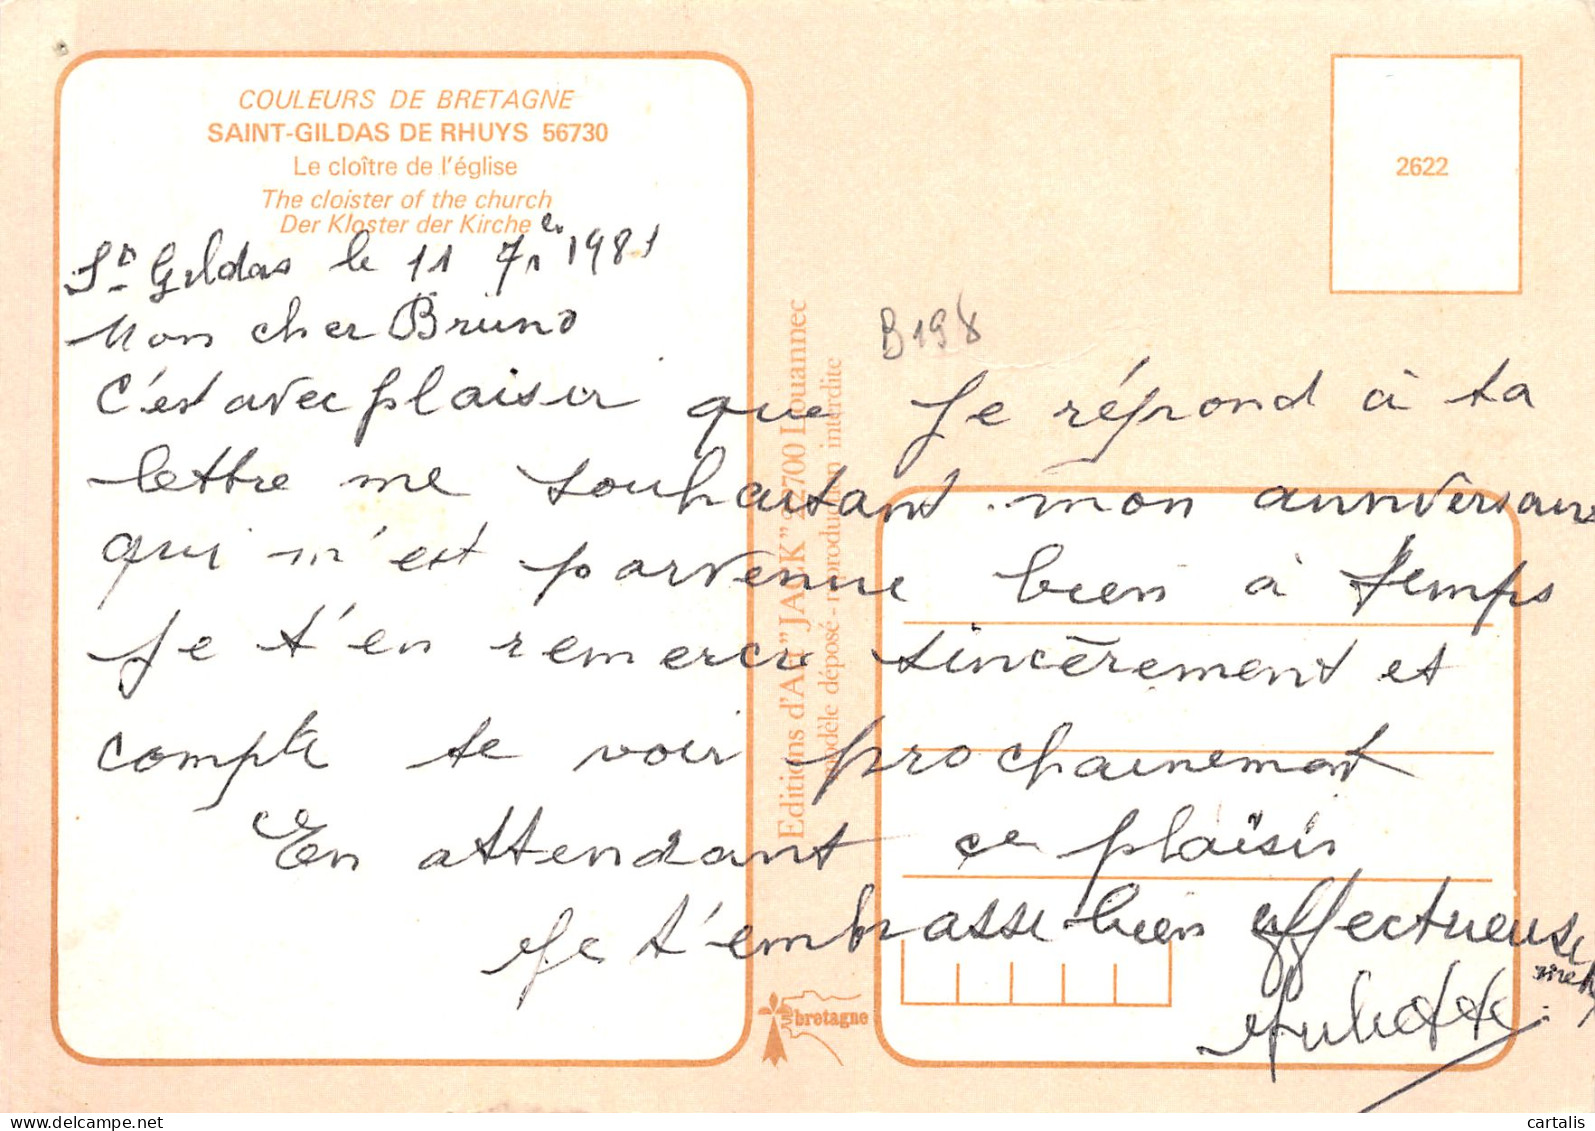 COULEURS DE BRETAGNE
SAINT-GILDAS DE RHUYS 56730
Le cloître de l'église
The cloister of the church
Der Kloster der Kirche
St Gildas le 11 7re 1981
Mon cher Bruno
C'est avec plaisir que Je répond à ta
lettre me souhaitant mon anniversaire
qui m'est parvenue bien à temps
Je t'en remercie sincèrement et
compte te voir prochainement
En attendant ce plaisir
Je t'embrasse bien affectueuse
ment
2622
B198
Editions d'Art "JACK" 22700 Louannec
modèle déposé - reproduction interdite
bretagne
cartalis